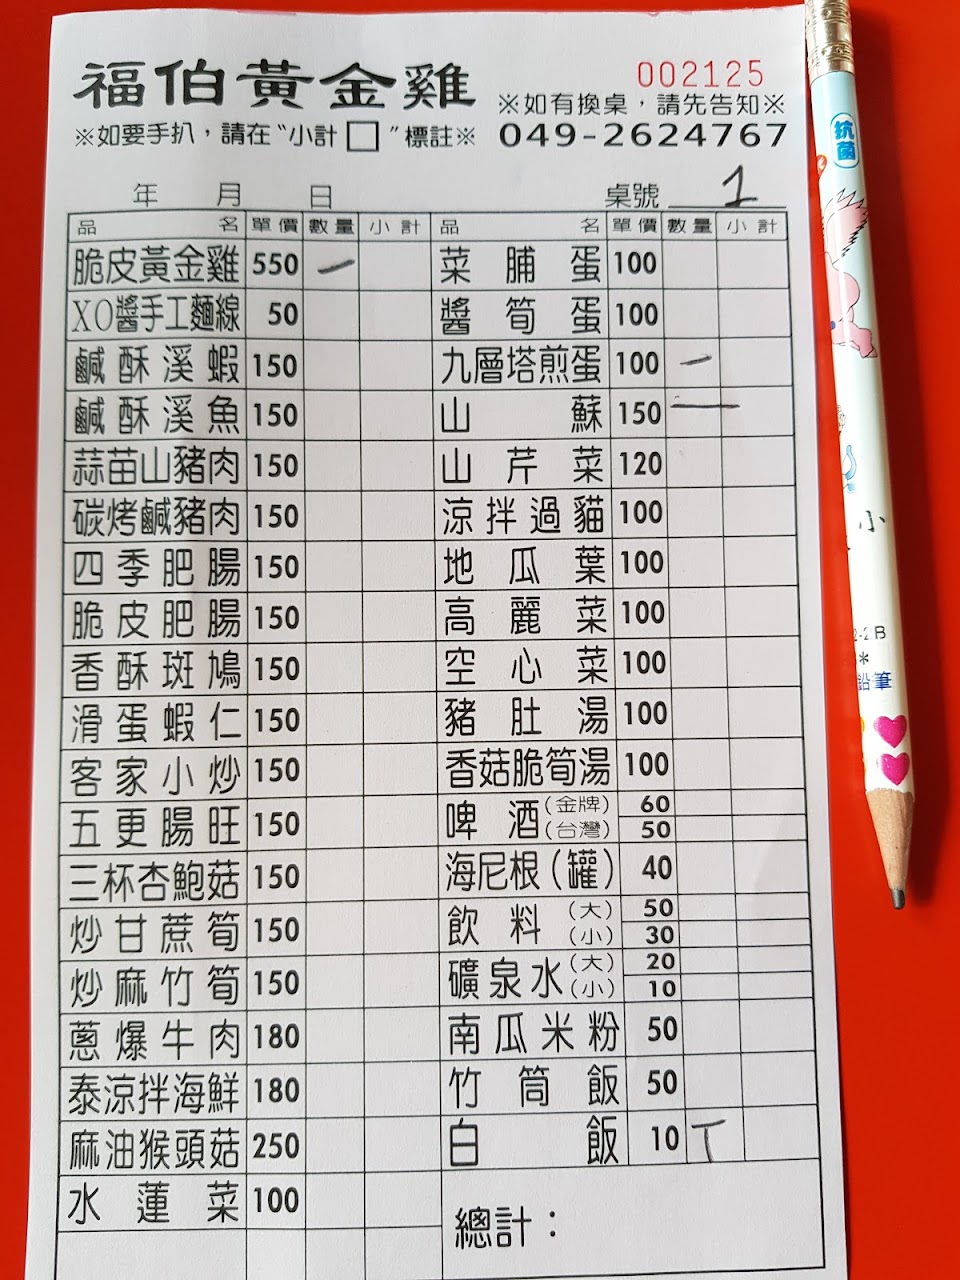 福伯黃金雞
002125
※如有換桌，請先告知※
※如要手扒，請在“小計□”標註※ 049-2624767
年 月 日 桌號 1
品名 單價 數量 小計 品名 單價 數量 小計
脆皮黃金雞 550 一 菜脯蛋 100
XO醬手工麵線 50 醬筍蛋 100
鹹酥溪蝦 150 九層塔煎蛋 100 一
鹹酥溪魚 150 山蘇 150 一
蒜苗山豬肉 150 山芹菜 120
碳烤鹹豬肉 150 涼拌過貓 100
四季肥腸 150 地瓜葉 100
脆皮肥腸 150 高麗菜 100
香酥斑鳩 150 空心菜 100
滑蛋蝦仁 150 豬肚湯 100
客家小炒 150 香菇脆筍湯 100
五更腸旺 150 啤酒(金牌) 60
(台灣) 50
三杯杏鮑菇 150 海尼根(罐) 40
炒甘蔗筍 150 飲料(大) 50
(小) 30
炒麻竹筍 150 礦泉水(大) 20
(小) 10
蔥爆牛肉 180 南瓜米粉 50
泰涼拌海鮮 180 竹筒飯 50
麻油猴頭菇 250 白飯 10 丅
水蓮菜 100 總計：
抗菌
小
2-2B
*
鉛筆